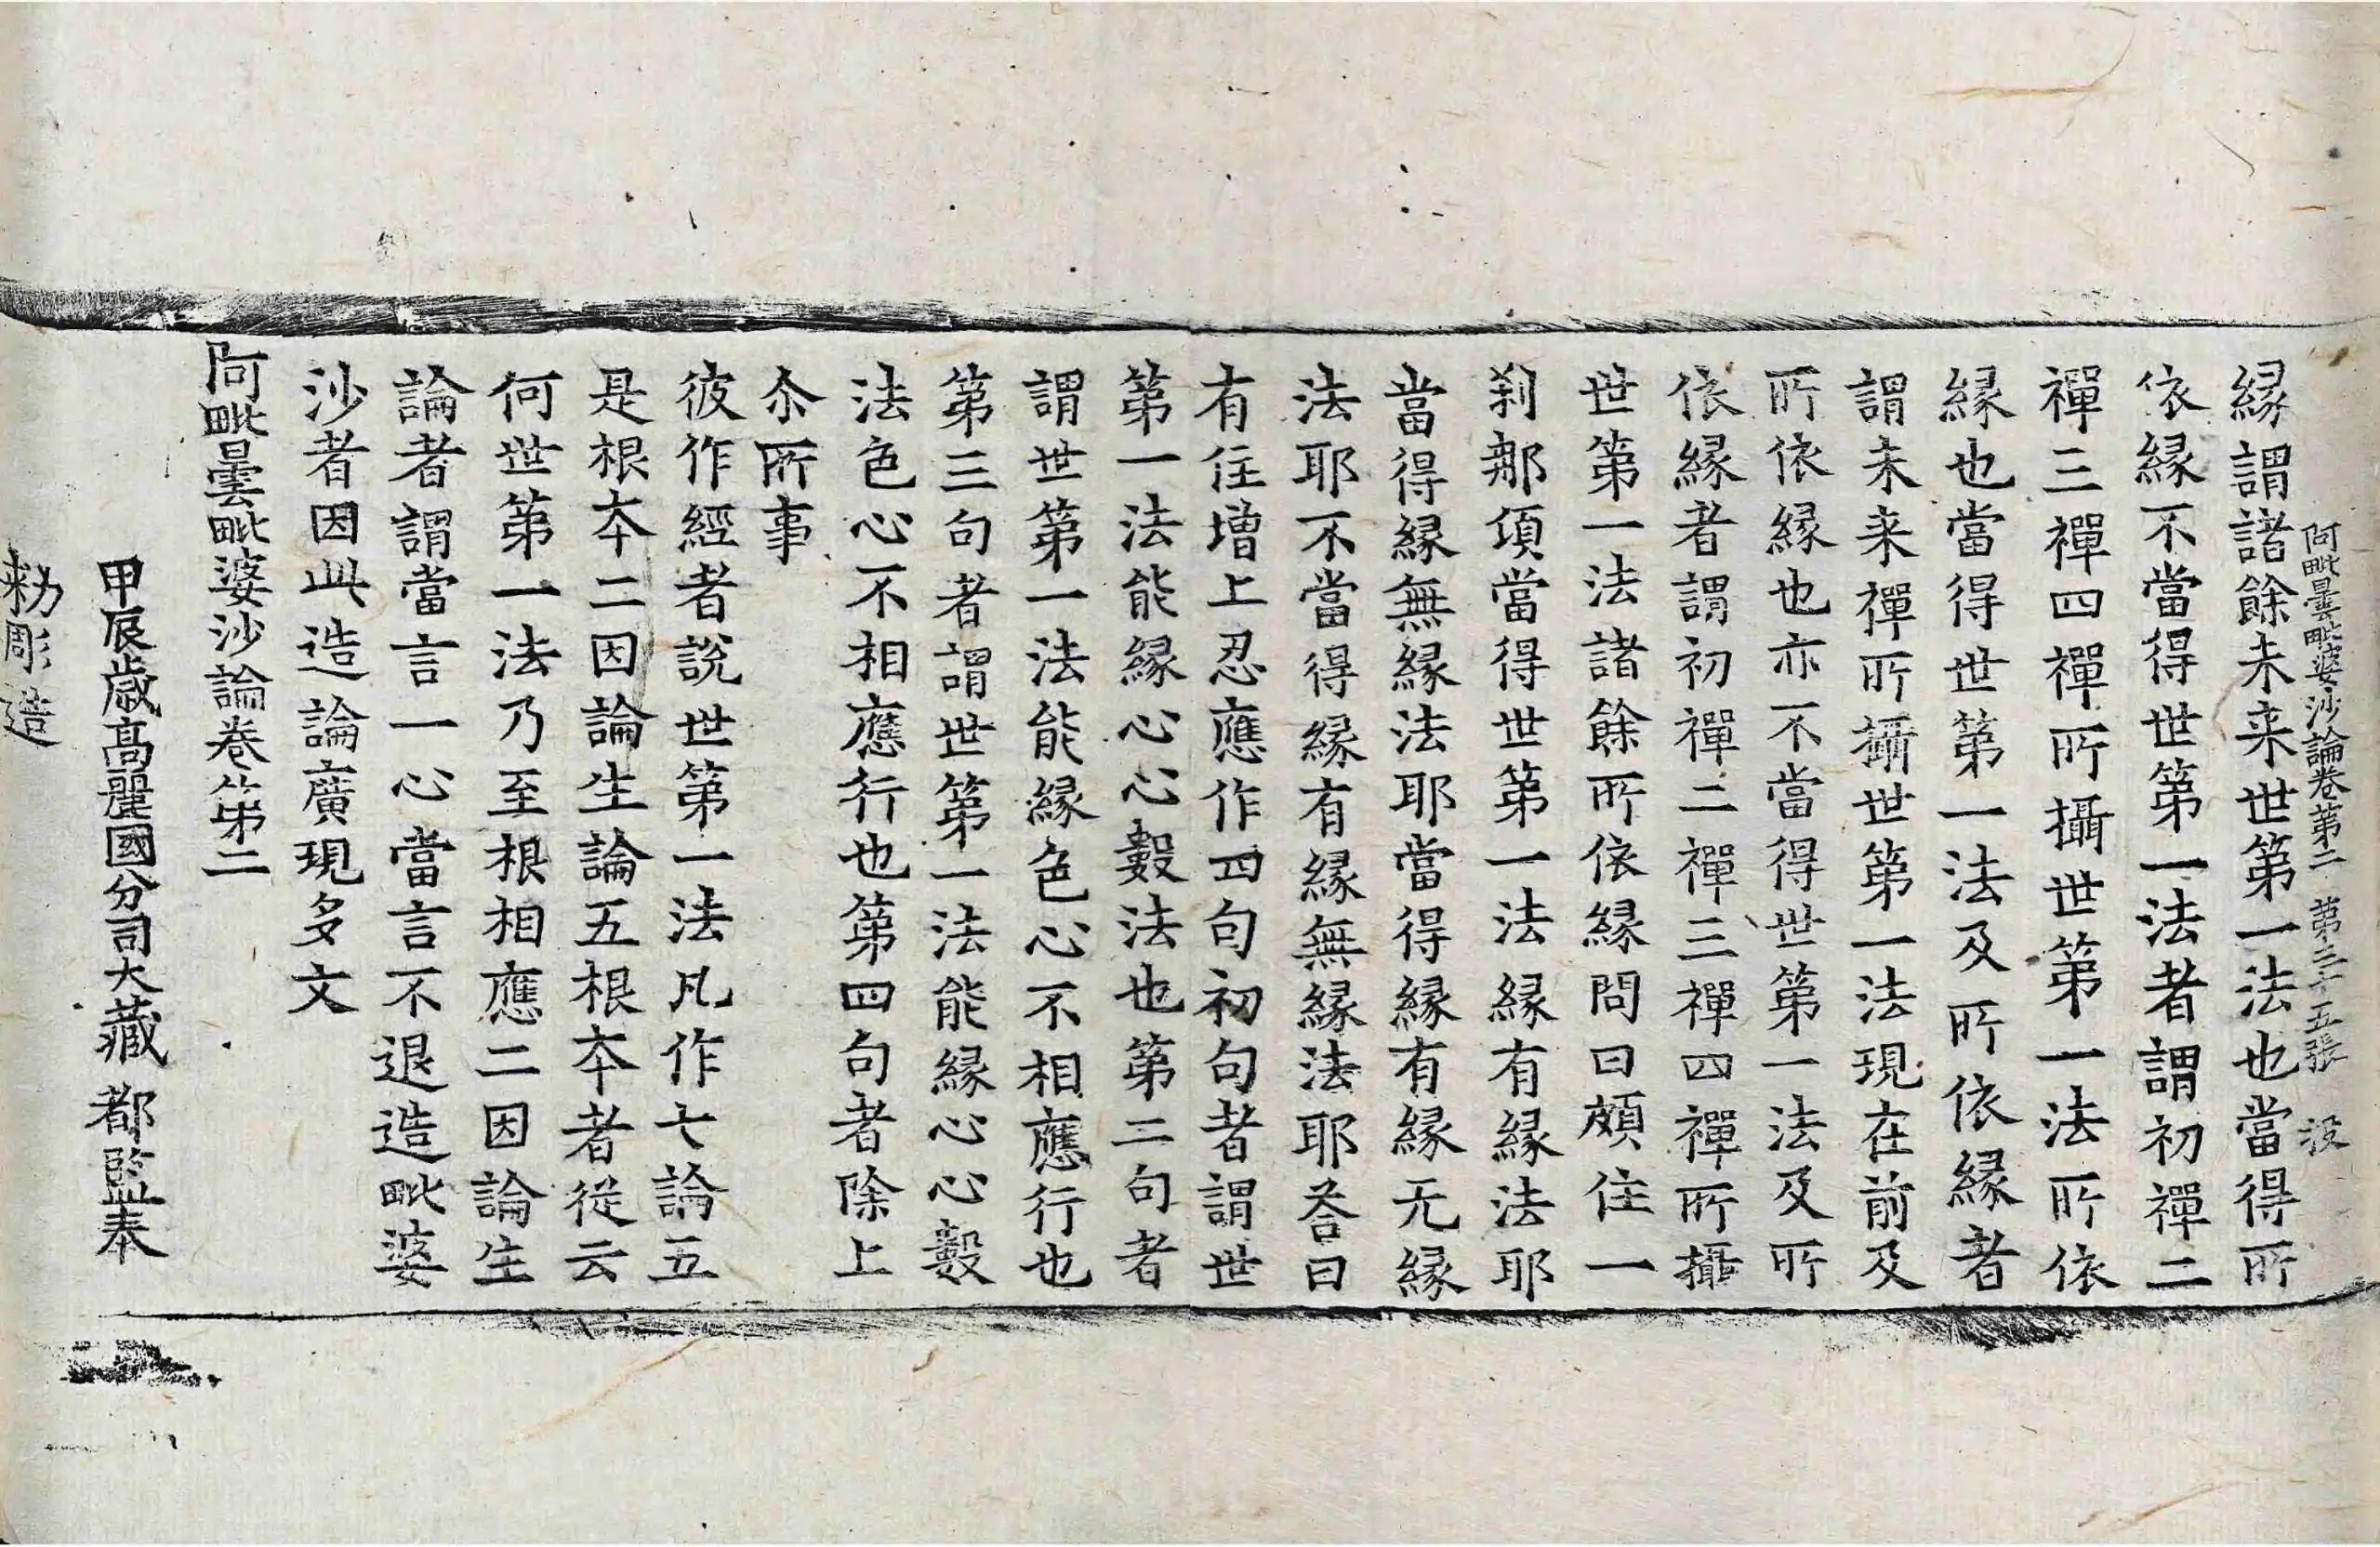 阿毗曇毗婆沙論卷第二　第三十五張　沒
縁謂諸餘未来世第一法也當得所
依縁不當得世第一法者謂初禪二
禪三禪四禪所攝世第一法所依
縁也當得世第一法及所依縁者
謂未来禪所攝世第一法現在前及
所依縁也亦不當得世第一法及所
依縁者謂初禪二禪三禪四禪所攝
世第一法諸餘所依縁問曰頗住一
刹那頃當得世第一法縁有縁法耶
當得縁無縁法耶當得縁有縁无縁
法耶不當得縁有縁無縁法耶荅曰
有住增上忍應作四句初句者謂世
第一法能縁心心數法也第二句者
謂世第一法能縁色心不相應行也
第三句者謂世第一法能縁心心數
法色心不相應行也第四句者除上
尒所事
彼作經者說世第一法凡作七論五
是根夲二因論生論五根夲者從云
何世第一法乃至根相應二因論生
論者謂當言一心當言不退造毗婆
沙者因此造論廣現多文
阿毗曇毗婆沙論卷第二
甲辰歲高麗國分司大藏都監奉
勑彫造